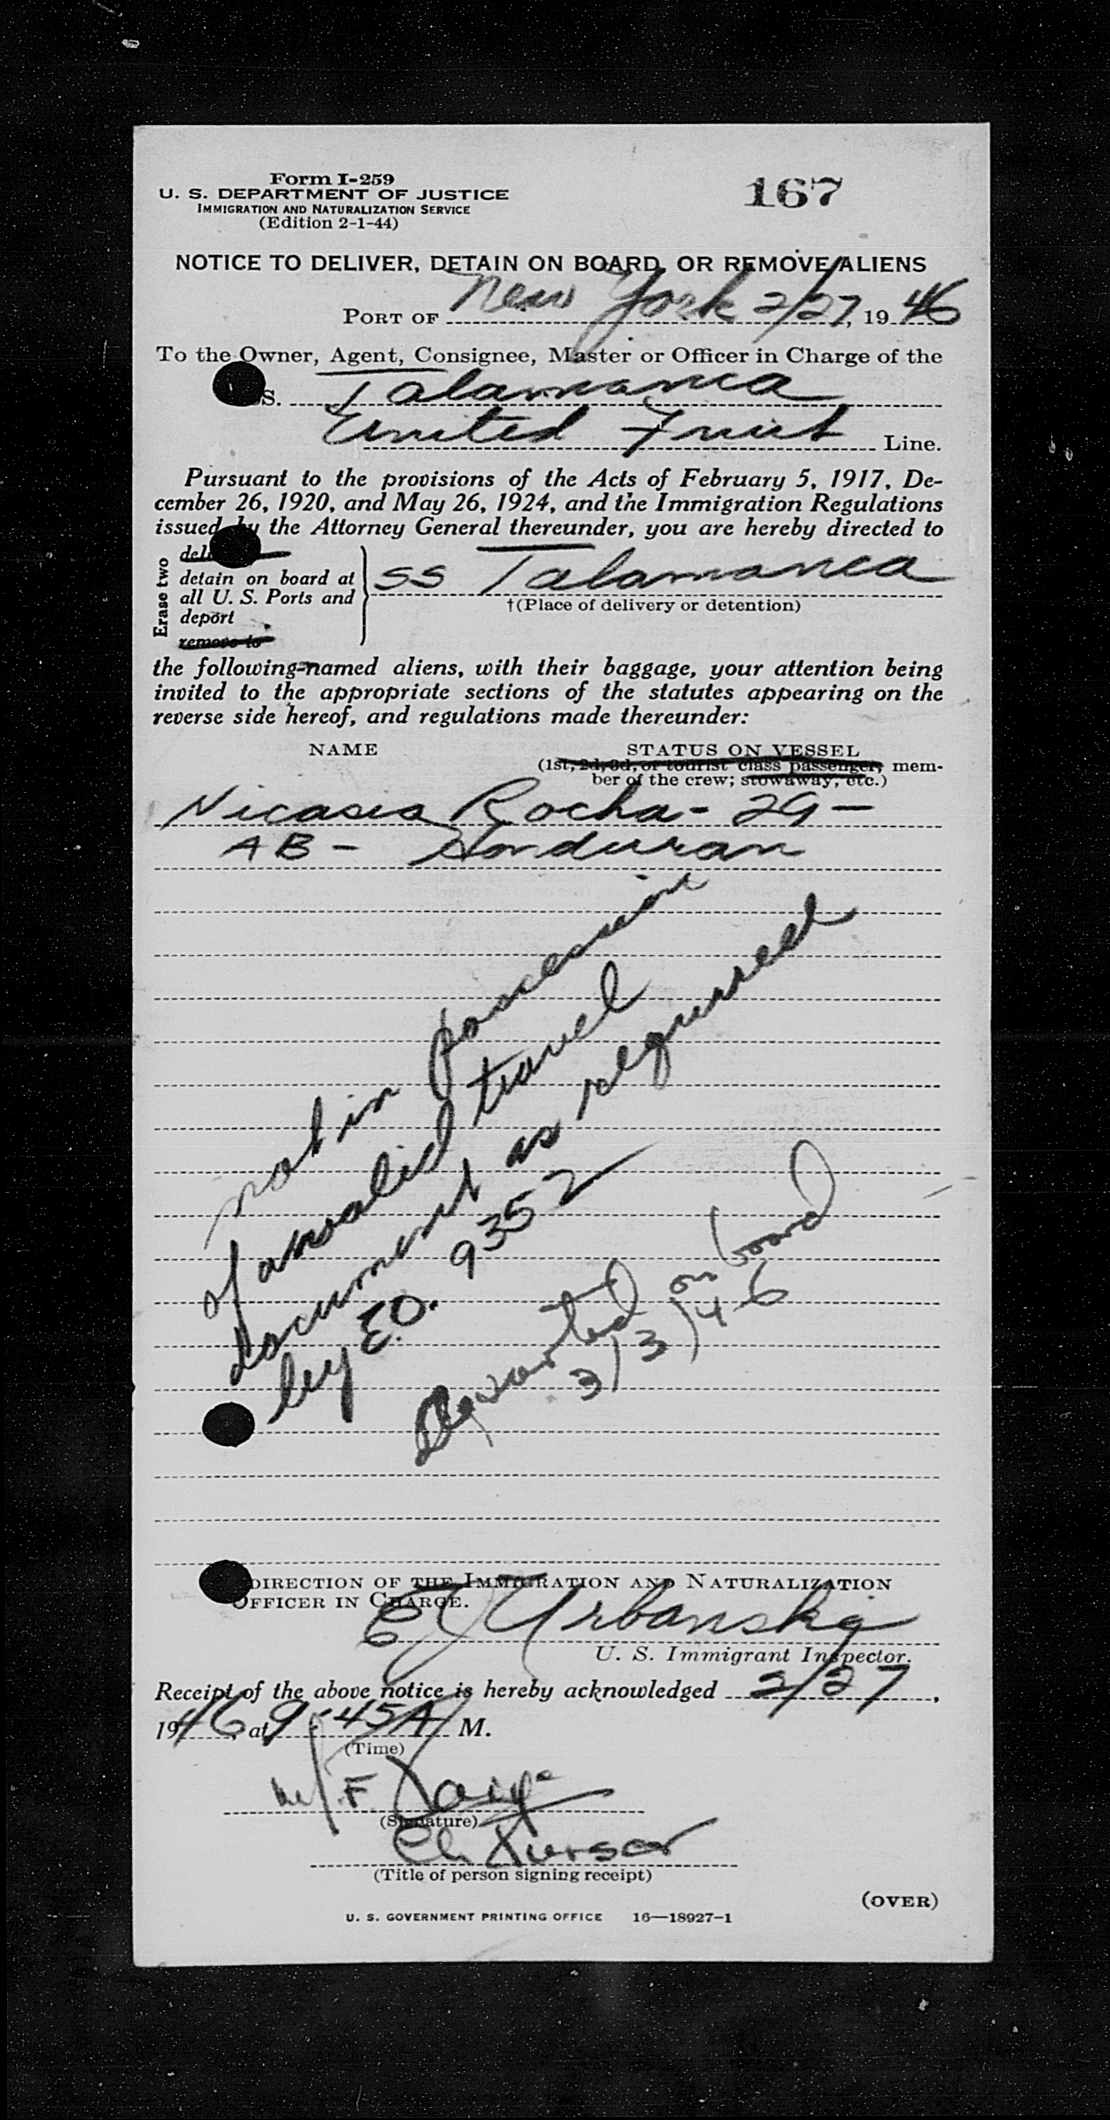 Form I-259
U. S. DEPARTMENT OF JUSTICE
IMMIGRATION AND NATURALIZATION SERVICE
(Edition 2-1-44)
167
NOTICE TO DELIVER, DETAIN ON BOARD, OR REMOVE ALIENS
PORT OF New York 2/27, 1946
To the Owner, Agent, Consignee, Master or Officer in Charge of the
S. Talamanca
United Fruit Line.
Pursuant to the provisions of the Acts of February 5, 1917, De-
cember 26, 1920, and May 26, 1924, and the Immigration Regulations
issued by the Attorney General thereunder, you are hereby directed to
Erase two
detain on board at
all U. S. Ports and
deport
remove to
SS Talamanca
†(Place of delivery or detention)
the following-named aliens, with their baggage, your attention being
invited to the appropriate sections of the statutes appearing on the
reverse side hereof, and regulations made thereunder:
NAME STATUS ON VESSEL
(1st, 2d, 3d, or tourist class passenger, mem-
ber of the crew; stowaway, etc.)
Nicasio Rocha - 29 -
AB - Honduran
not in possession
of a valid travel
document as required
by E.O. 9352
Departed on board
3/3/46
DIRECTION OF THE IMMIGRATION AND NATURALIZATION
OFFICER IN CHARGE.
Urbanski
U. S. Immigrant Inspector.
Receipt of the above notice is hereby acknowledged 2/27,
1946 at 9:45 A M.
(Time)
F.
(Signature)
Ch. Purser
(Title of person signing receipt)
(OVER)
U. S. GOVERNMENT PRINTING OFFICE 16—18927-1